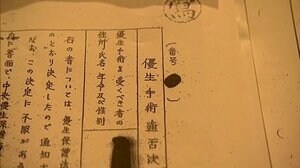 番号
優生手術適否決
優生手術を受くべき者の
住所氏名、年令及び性別
右の者については、優生保護法
のとおり決定したので通知す
なお、この決定に不服がある
に書面で、中央優生保護審